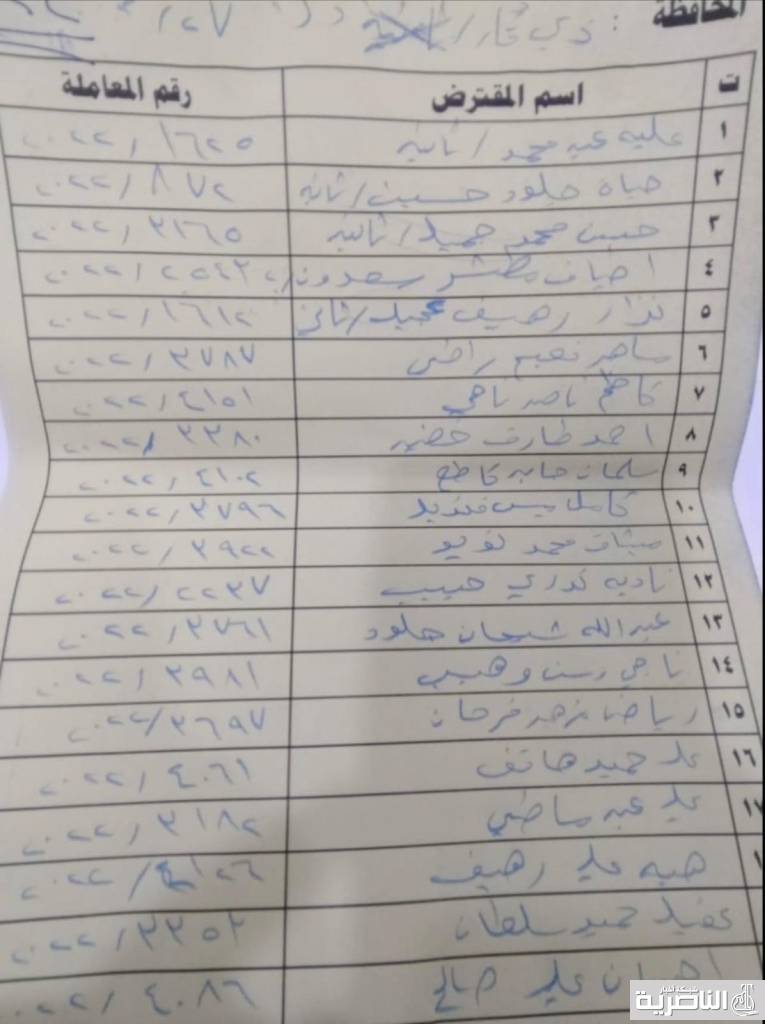 المحافظة : ذي قار /
ت اسم المقترض رقم المعاملة
١ علية عبد محمد / ثانية ١٦٢٥ / ٢٠٢٢
٢ حياة جلود حسين / ثانية ٨٧٢ / ٢٠٢٢
٣ حسن محمد حميد / ثانية ٣١٦٥ / ٢٠٢٢
٤ مطشر سعدون ٢٥٤٣ / ٢٠٢٢
٥ نزار رهيف / ثاني ١٦١٢ / ٢٠٢٢
٦ ماهر نعيم راضي ٣٧٨٧ / ٢٠٢٢
٧ كاظم ناصر ناجي ٤١٥١ / ٢٠٢٢
٨ احمد طارق خضير ٣٣٨٠ / ٢٠٢٢
٩ سلمان كاطع ٤١٠٢ / ٢٠٢٢
١٠ كامل ٣٧٩٦ / ٢٠٢٢
١١ ميثاق محمد ٣٩٢٢ / ٢٠٢٢
١٢ نادية كوري حبيب ٢٢٣٧ / ٢٠٢٢
١٣ عبدالله شيحان جلود ٣٧٦١ / ٢٠٢٢
١٤ ناجي رسن وهيب ٣٩٨١ / ٢٠٢٢
١٥ رياض مزهر فرحان ٣٦٩٧ / ٢٠٢٢
١٦ علي حميد هاتف ٤٠٦١ / ٢٠٢٢
١٧ علي عبد ماضي ٣١٨٢ / ٢٠٢٢
هبه علي رهيف ٤١٢٦ / ٢٠٢٢
عقيل حميد سلطان ٣٣٥٢ / ٢٠٢٢
علي صالح ٤٠٨٦ / ٢٠٢٢
شبكة أخبار
الناصرية